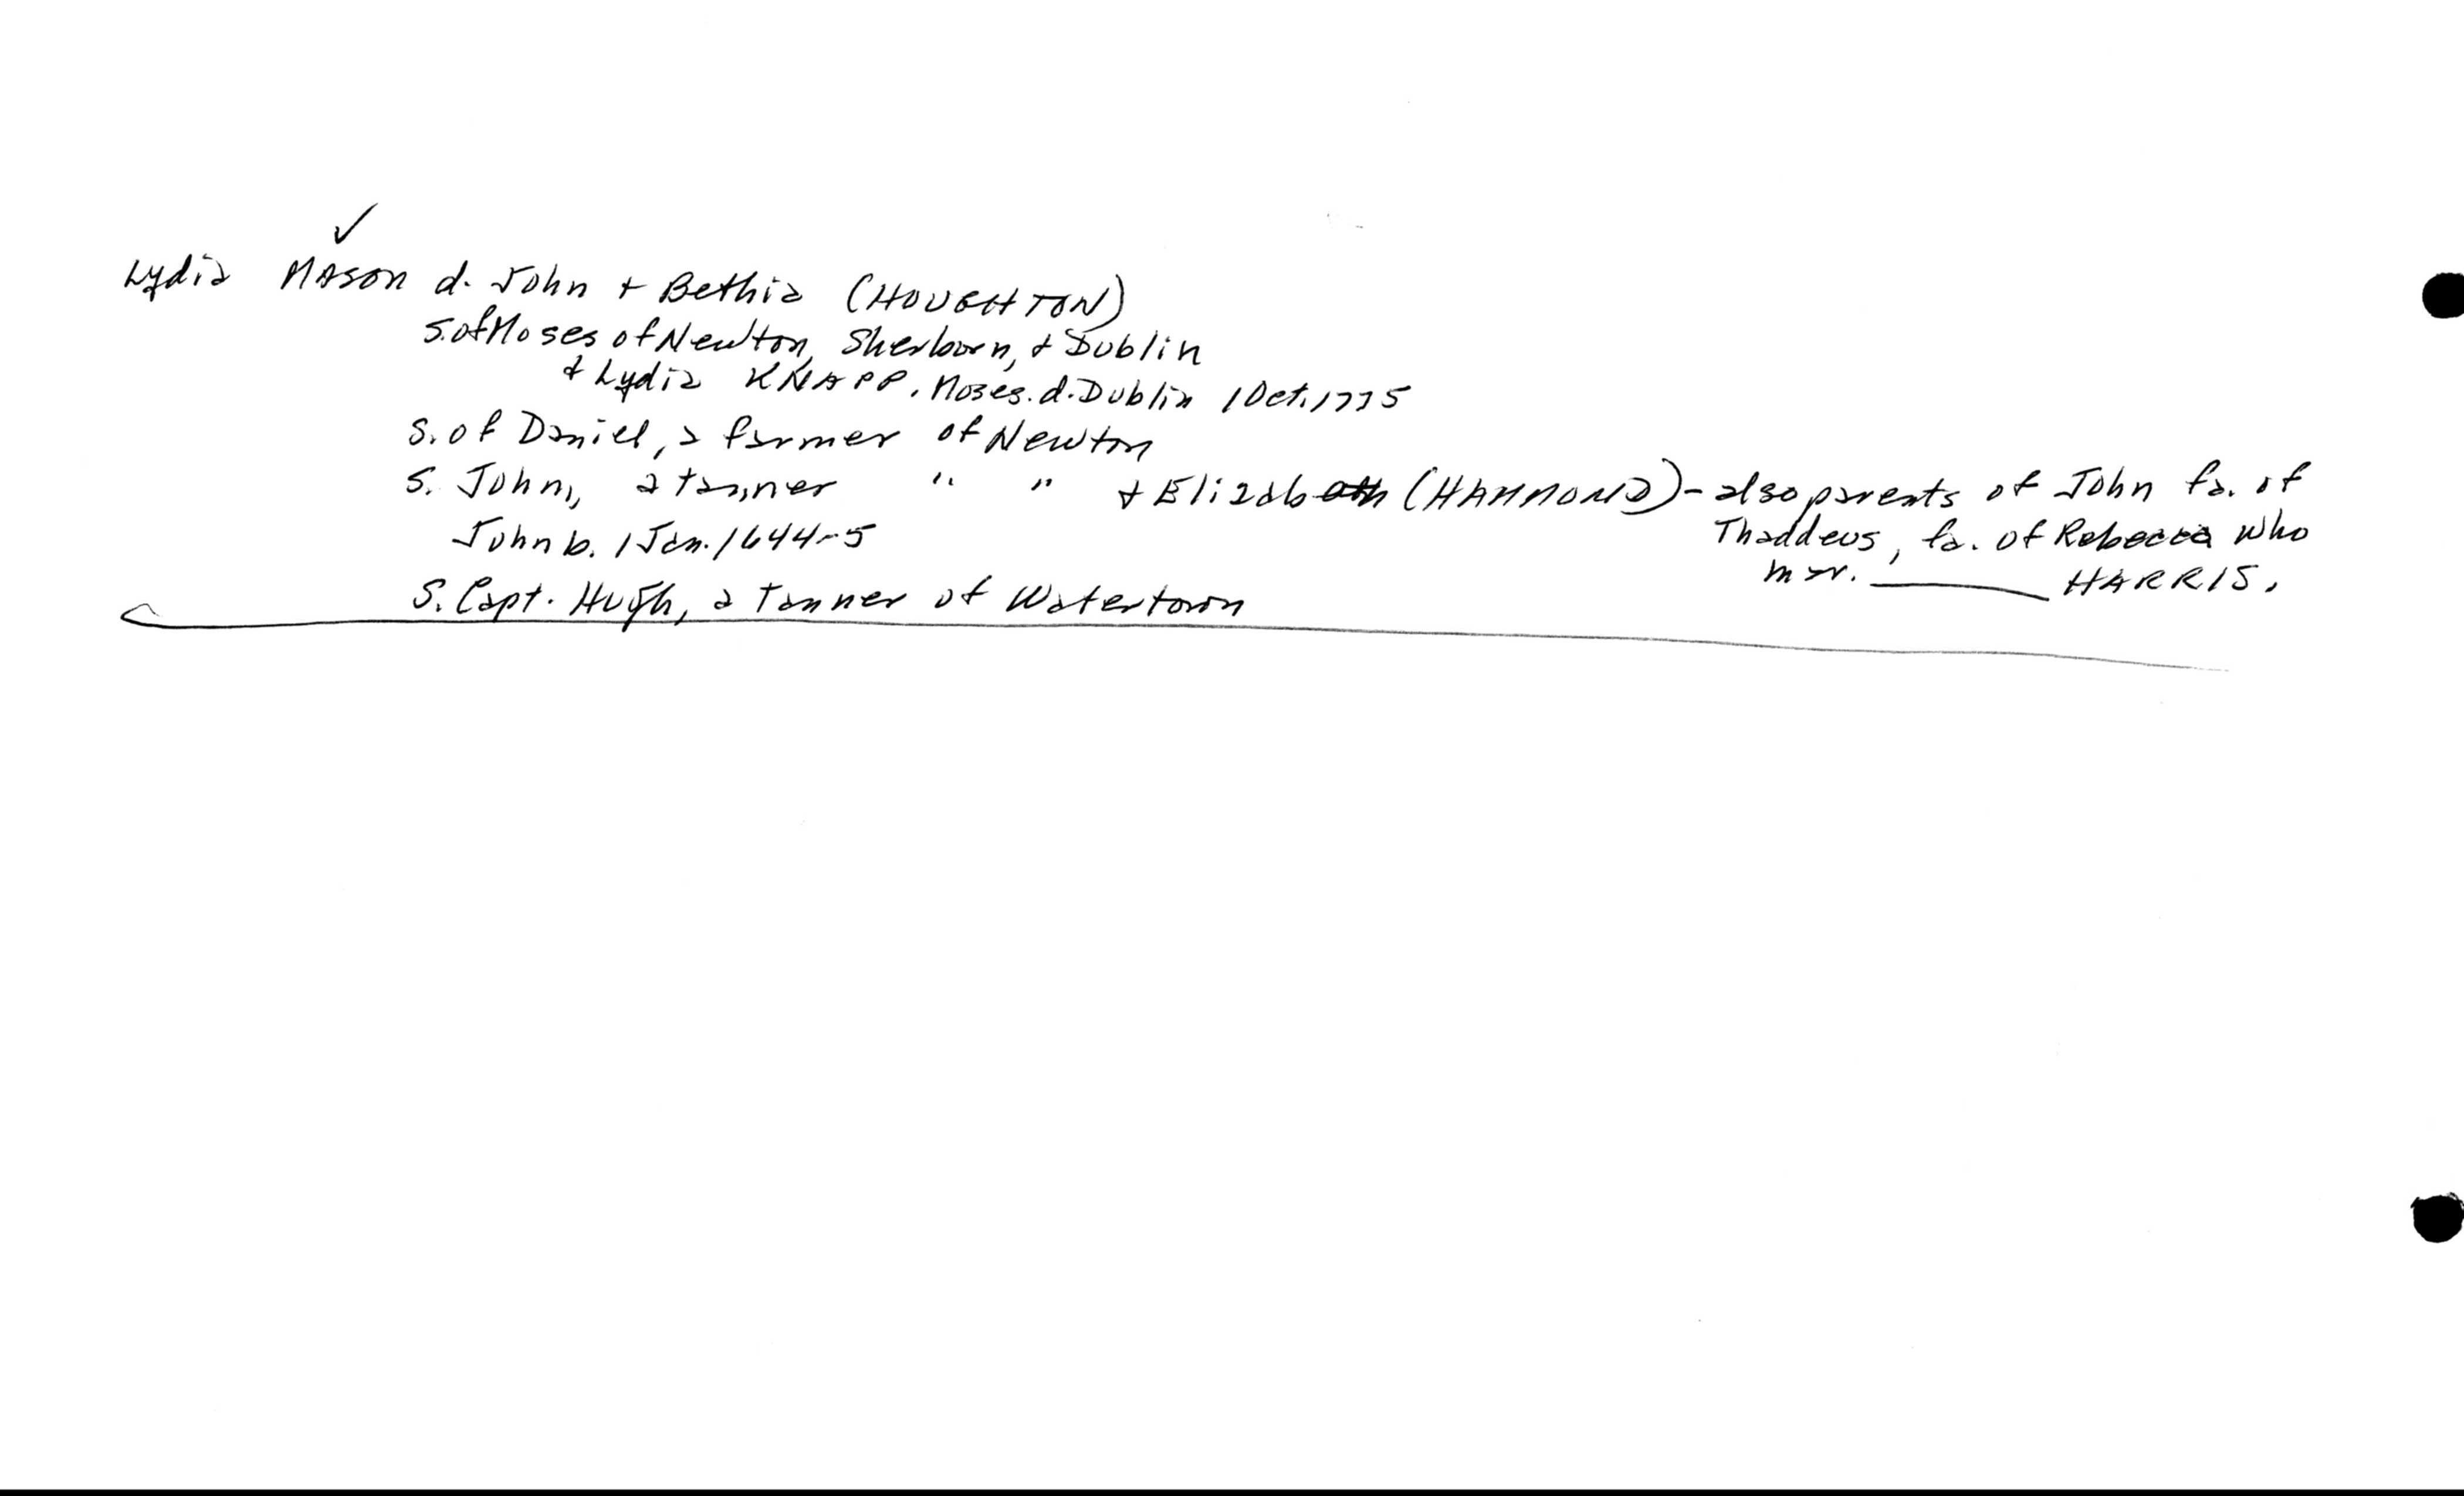 ✓
Lydia MASON d. John + Bethia (HOUGHTON)
s. of Moses of Newton, Sherborn, + Dublin
+ Lydia KNAPP. Moses. d. Dublin 1 Oct. 1775
S. of Daniel, a farmer of Newton
S. John, a tanner " " + Elizabeth (HAMMOND) - also parents of John fa. of
Thaddeus, fa. of Rebecca who
mar. ______ HARRIS.
John b. 1 Jan. 1644-5
S. Capt. Hugh, a tanner of Watertown